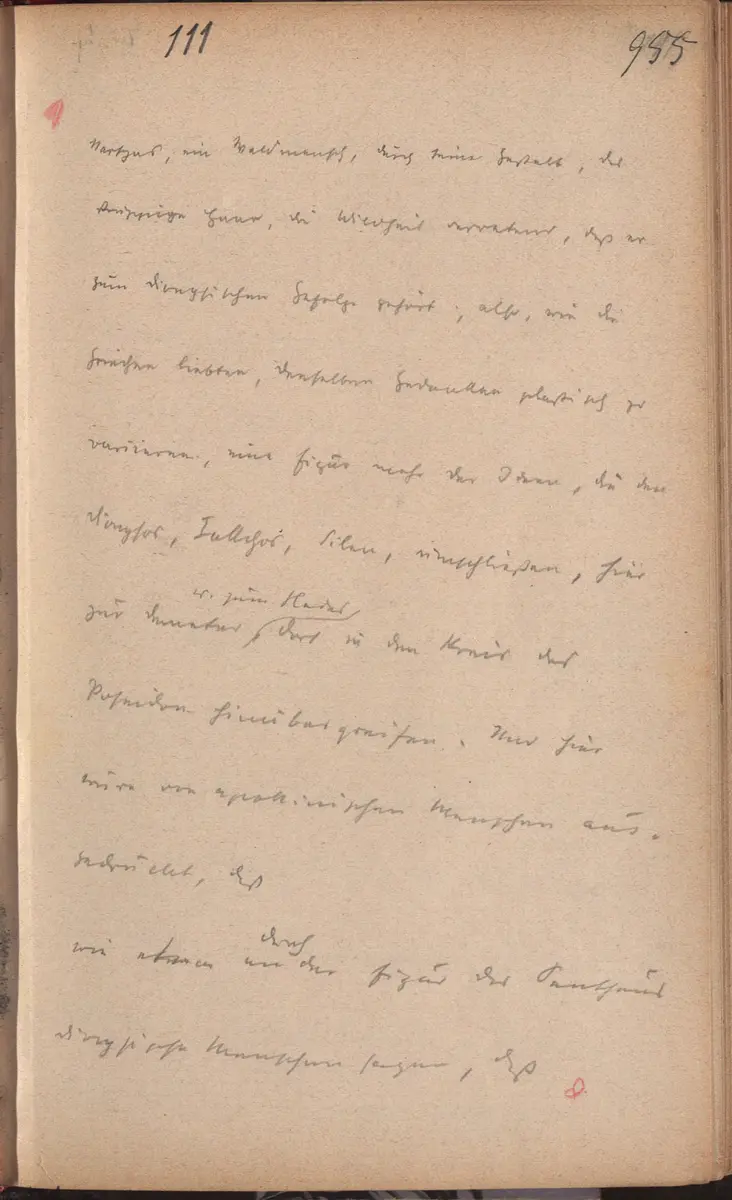 111
955
Marsyas, ein Waldmensch, durch seine Gestalt, das
struppige Haar, die Wildheit verratend, daß er
zum dionysischen Gefolge gehört; also, wie die
Griechen liebten, denselben Gedanken plastisch zu
variieren, eine Figur mehr der Ideen, die den
Dionysos, Iakchos, Silen, umschließen, hier
u. zum Hades
zur Demeter, dort in den Kreis des
Poseidon hinübergreifen. Und hier
wäre von apollinischen Menschen aus-
gedrückt, daß
durch
wie etwa an der Figur des Pentheus
dionysische Menschen sagen, daß